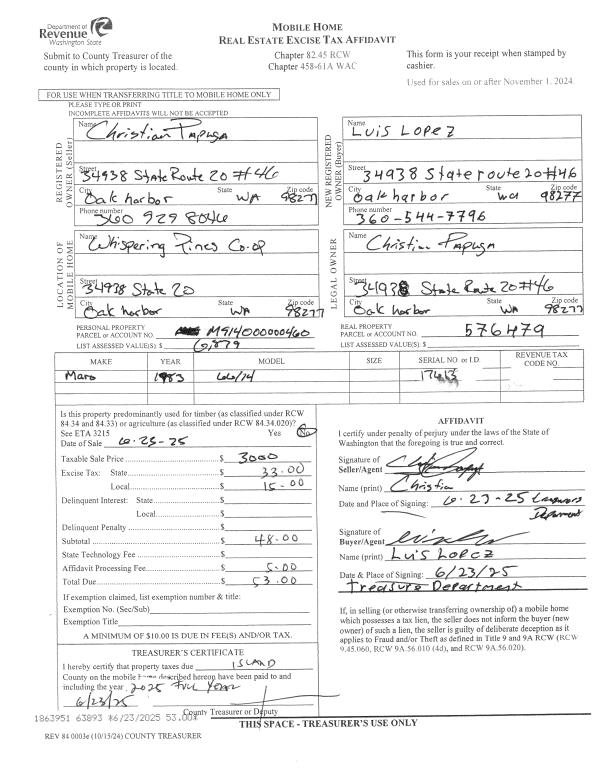 Department of
Revenue
Washington State
MOBILE HOME
REAL ESTATE EXCISE TAX AFFIDAVIT
Submit to County Treasurer of the
county in which property is located.
Chapter 82.45 RCW
Chapter 458-61A WAC
This form is your receipt when stamped by
cashier.
Used for sales on or after November 1, 2024.
FOR USE WHEN TRANSFERRING TITLE TO MOBILE HOME ONLY
PLEASE TYPE OR PRINT
INCOMPLETE AFFIDAVITS WILL NOT BE ACCEPTED
REGISTERED
OWNER (Seller)
Name Christian Papuga
Street 34938 State Route 20 #46
City State Zip code
Oak harbor WA 98277
Phone number
360 929 8046
NEW REGISTERED
OWNER (Buyer)
Name LUIS LOPEZ
Street 34938 State route 20 #46
City State Zip code
Oak harbor WA 98277
Phone number
360-544-7796
LOCATION OF
MOBILE HOME
Name Whispering Pines Co-op
Street 34938 State 20
City State Zip code
Oak harbor WA 98277
LEGAL OWNER
Name Christian Papuga
Street 34938 State Route 20 #46
City State Zip code
Oak harbor WA 98277
PERSONAL PROPERTY
PARCEL or ACCOUNT NO. M914000000460
LIST ASSESSED VALUE(S) $ 6,879
REAL PROPERTY
PARCEL or ACCOUNT NO. 576479
LIST ASSESSED VALUE(S) $
MAKE YEAR MODEL SIZE SERIAL NO or I.D. REVENUE TAX CODE NO.
Maro 1983 66/14
Is this property predominantly used for timber (as classified under RCW
84.34 and 84.33) or agriculture (as classified under RCW 84.34.020)?
See ETA 3215 Yes No
Date of Sale 6-23-25
Taxable Sale Price $ 3000
Excise Tax: State $ 33.00
Local $ 15-00
Delinquent Interest: State $
Local $
Delinquent Penalty $
Subtotal $ 48.00
State Technology Fee $
Affidavit Processing Fee $ 5.00
Total Due $ 53.00
If exemption claimed, list exemption number & title:
Exemption No. (Sec/Sub)
Exemption Title
A MINIMUM OF $10.00 IS DUE IN FEE(S) AND/OR TAX.
TREASURER'S CERTIFICATE
I hereby certify that property taxes due ISLAND
County on the mobile home described hereon have been paid to and
including the year 2025 FULL YEAR
6/23/25
County Treasurer or Deputy
AFFIDAVIT
I certify under penalty of perjury under the laws of the State of
Washington that the foregoing is true and correct.
Signature of
Seller/Agent
Name (print) Christian
Date and Place of Signing: 6-23-25
Signature of
Buyer/Agent
Name (print) LUIS LOPEZ
Date & Place of Signing: 6/23/25
Treasure Department
If, in selling (or otherwise transferring ownership of) a mobile home
which possesses a tax lien, the seller does not inform the buyer (new
owner) of such a lien, the seller is guilty of deliberate deception as it
applies to Fraud and/or Theft as defined in Title 9 and 9A RCW (RCW
9.45.060, RCW 9A.56.010 (4d), and RCW 9A.56.020).
1863951 63893 *6/23/2025 53.00*
THIS SPACE - TREASURER'S USE ONLY
REV 84 0003e (10/15/24) COUNTY TREASURER